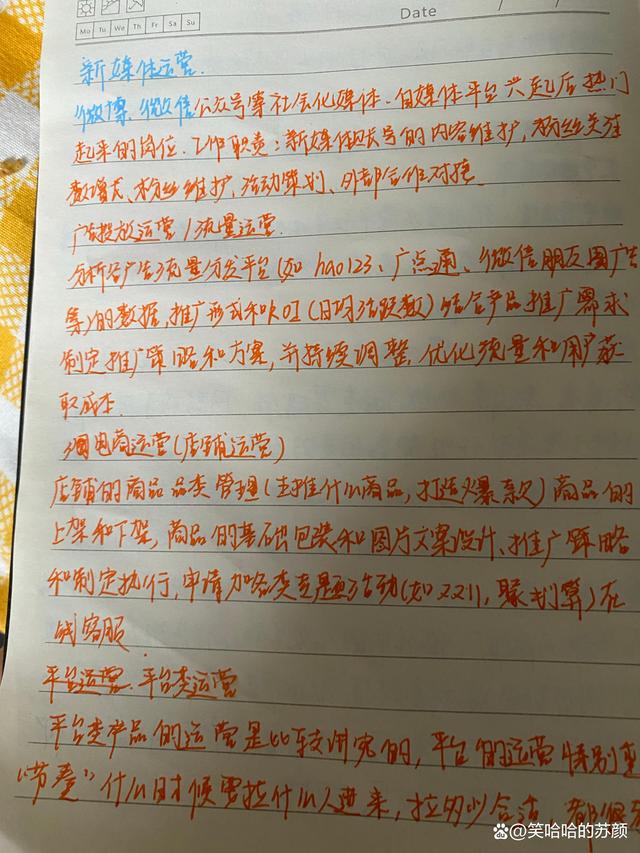 Date / /
Mo Tu We Th Fr Sa Su
新媒体运营.
微博、微信公众号等社会化媒体.自媒体平台兴起后热门
起来的岗位.工作职责:新媒体账号的内容维护,粉丝关注
数增长、粉丝维护,活动策划、外部合作对接
广告投放运营/流量运营.
分析各广告流量分发平台(如hao123、广点通、微信朋友圈广告
等)的数据,推广形式和ROI(日均活跃数)结合产品推广需求
制定推广策略和方案,并持续调整,优化流量和用户获
取成本.
电商运营(店铺运营)
店铺的商品品类管理(主推什么商品,打造爆款)商品的
上架和下架,商品的基础包装和图片文案设计、推广策略
和制定执行,申请加各类主题活动(如双11,聚划算)在
线客服
平台运营.平台类运营
平台类产品的运营是比较讲究的,平台的运营特别重
“节奏”什么时候要拉什么人进来,拉多少合适,都很
笑哈哈的苏颜